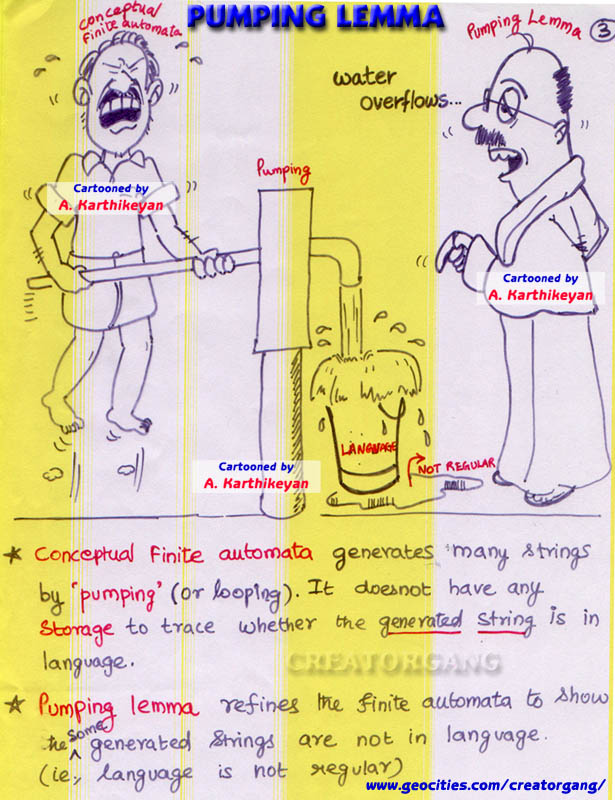 PUMPING LEMMA
conceptual
finite automata
Pumping Lemma
3
water
overflows...
Pumping
Cartooned by
A. Karthikeyan
Cartooned by
A. Karthikeyan
Cartooned by
A. Karthikeyan
LANGUAGE
NOT REGULAR
Cartooned by
A. Karthikeyan
★ Conceptual Finite automata generates many strings
by 'pumping' (or looping). It doesnot have any
storage to trace whether the generated string is in
language.
CREATORGANG
★ Pumping lemma refines the finite automata to show
the some generated strings are not in language.
(ie., language is not regular)
www.geocities.com/creatorgang/